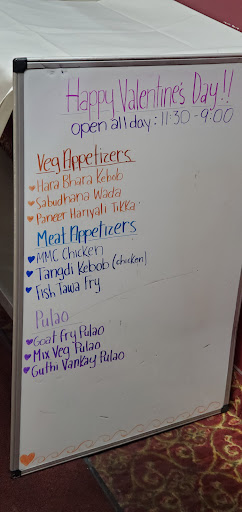 Happy Valentine's Day!!
open all day: 11:30-9:00
Veg Appetizers
Hara Bhara Kebob
Sabudhana Wada
Paneer Hariyali Tikka
Meat Appetizers
MMC Chicken
Tangdi Kebob (chicken)
Fish Tawa Fry
Pulao
Goat Fry Pulao
Mix Veg Pulao
Guthi Vankay Pulao